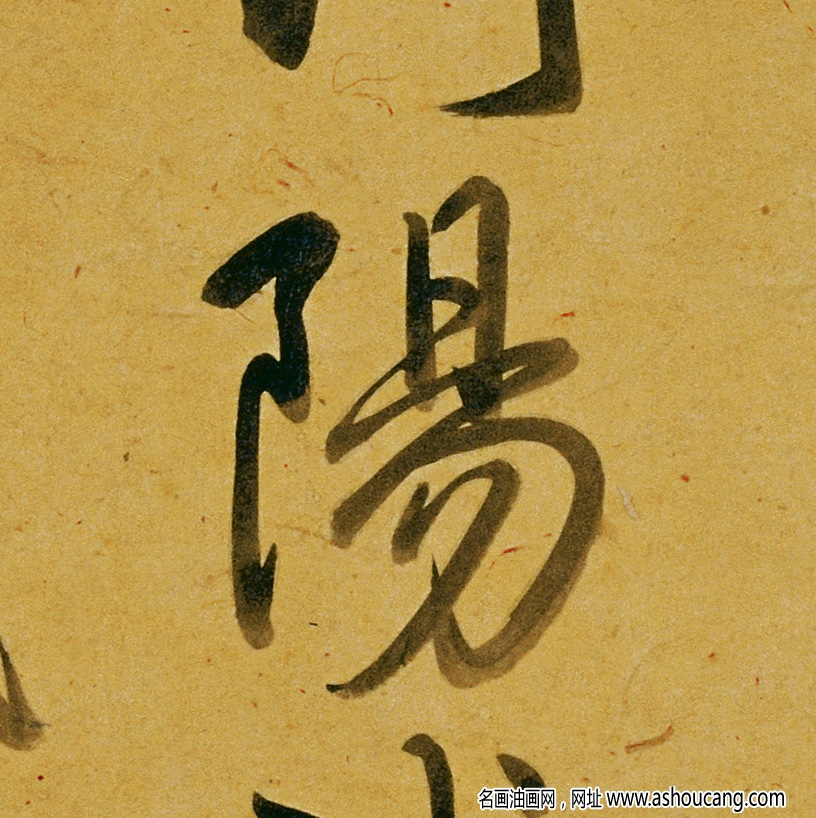 陽
名画油画网，网址 www.ashoucang.com